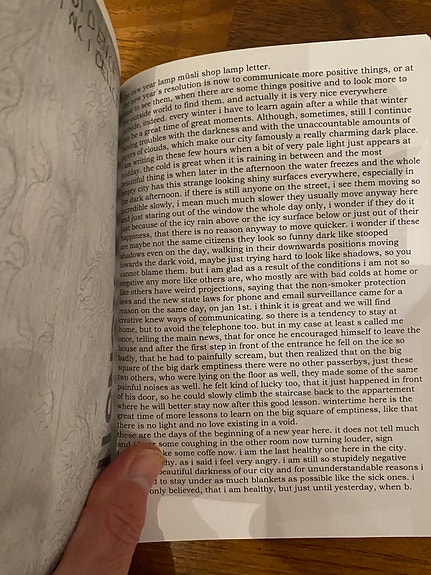 UIDENC
INCID
new year lamp müsli shop lamp letter.
new year's resolution is now to communicate more positive things, or at
to see them, when there are some things positive and to look more to
outside world to find them. and actually it is very nice everywhere
outside, indeed. every winter i have to learn again after a while that winter
can be a great time of great moments. Although, sometimes, still I continue
having troubles with the darkness and with the unaccountable amounts of
layers of clouds, which make our city famously a really charming dark place.
am writting in these few hours when a bit of very pale light just appears at
midday, the cold is great when it is raining in between and the most
beautiful thing is when later in the afternoon the water freezes and the whole
empty city has this strange looking shiny surfaces everywhere, especially in
the dark afternoon. if there is still anyone on the street, i see them moving so
incredible slowly, i mean much much slower they usually move anywhere here
and just staring out of the window the whole day only, i wonder if they do it
just because of the icy rain above or the icy surface below or just out of their
happiness, that there is no reason anyway to move quicker. i wonder if these
are maybe not the same citizens they look so funny dark like stooped
shadows even on the day, walking in their downwards positions moving
towards the dark void, maybe just trying to look like shadows, so you
cannot blame them. but i am glad as a result of the conditions i am not so
negative any more like others are, who mostly are with bad colds at home or
like others have weird projections, saying that the non-smoker protection
laws and the new state laws for phone and email surveillance came for a
reason on the same day, on jan 1st. i think it is great and we will find
creative knew ways of communicating. so there is a tendency to stay at
home, but to avoid the telephone too. but in my case at least s called me
once, telling the main news, that for once he encouraged himself to leave the
house and after the first step in front of the entrance he fell on the ice so
badly, that he had to painfully scream, but then realized that on the big
square of the big dark emptiness there were no other passerbys, just these
two others, who were lying on the floor as well, they made some of the same
painful noises as well. he felt kind of lucky too, that it just happened in front
of his door, so he could slowly climb the staircase back to the appartement
where he will better stay now after this good lesson. wintertime here is the
great time of more lessons to learn on the big square of emptiness, like that
there is no light and no love existing in a void.
these are the days of the beginning of a new year here. it does not tell much
and i some coughing in the other room now turning louder, sign
ke some coffe now. i am the last healthy one here in the city.
hy. as i said i feel very angry. i am still so stupidely negative
beautiful darkness of our city and for ununderstandable reasons i
to stay under as much blankets as possible like the sick ones. i
only believed, that i am healthy, but just until yesterday, when b.